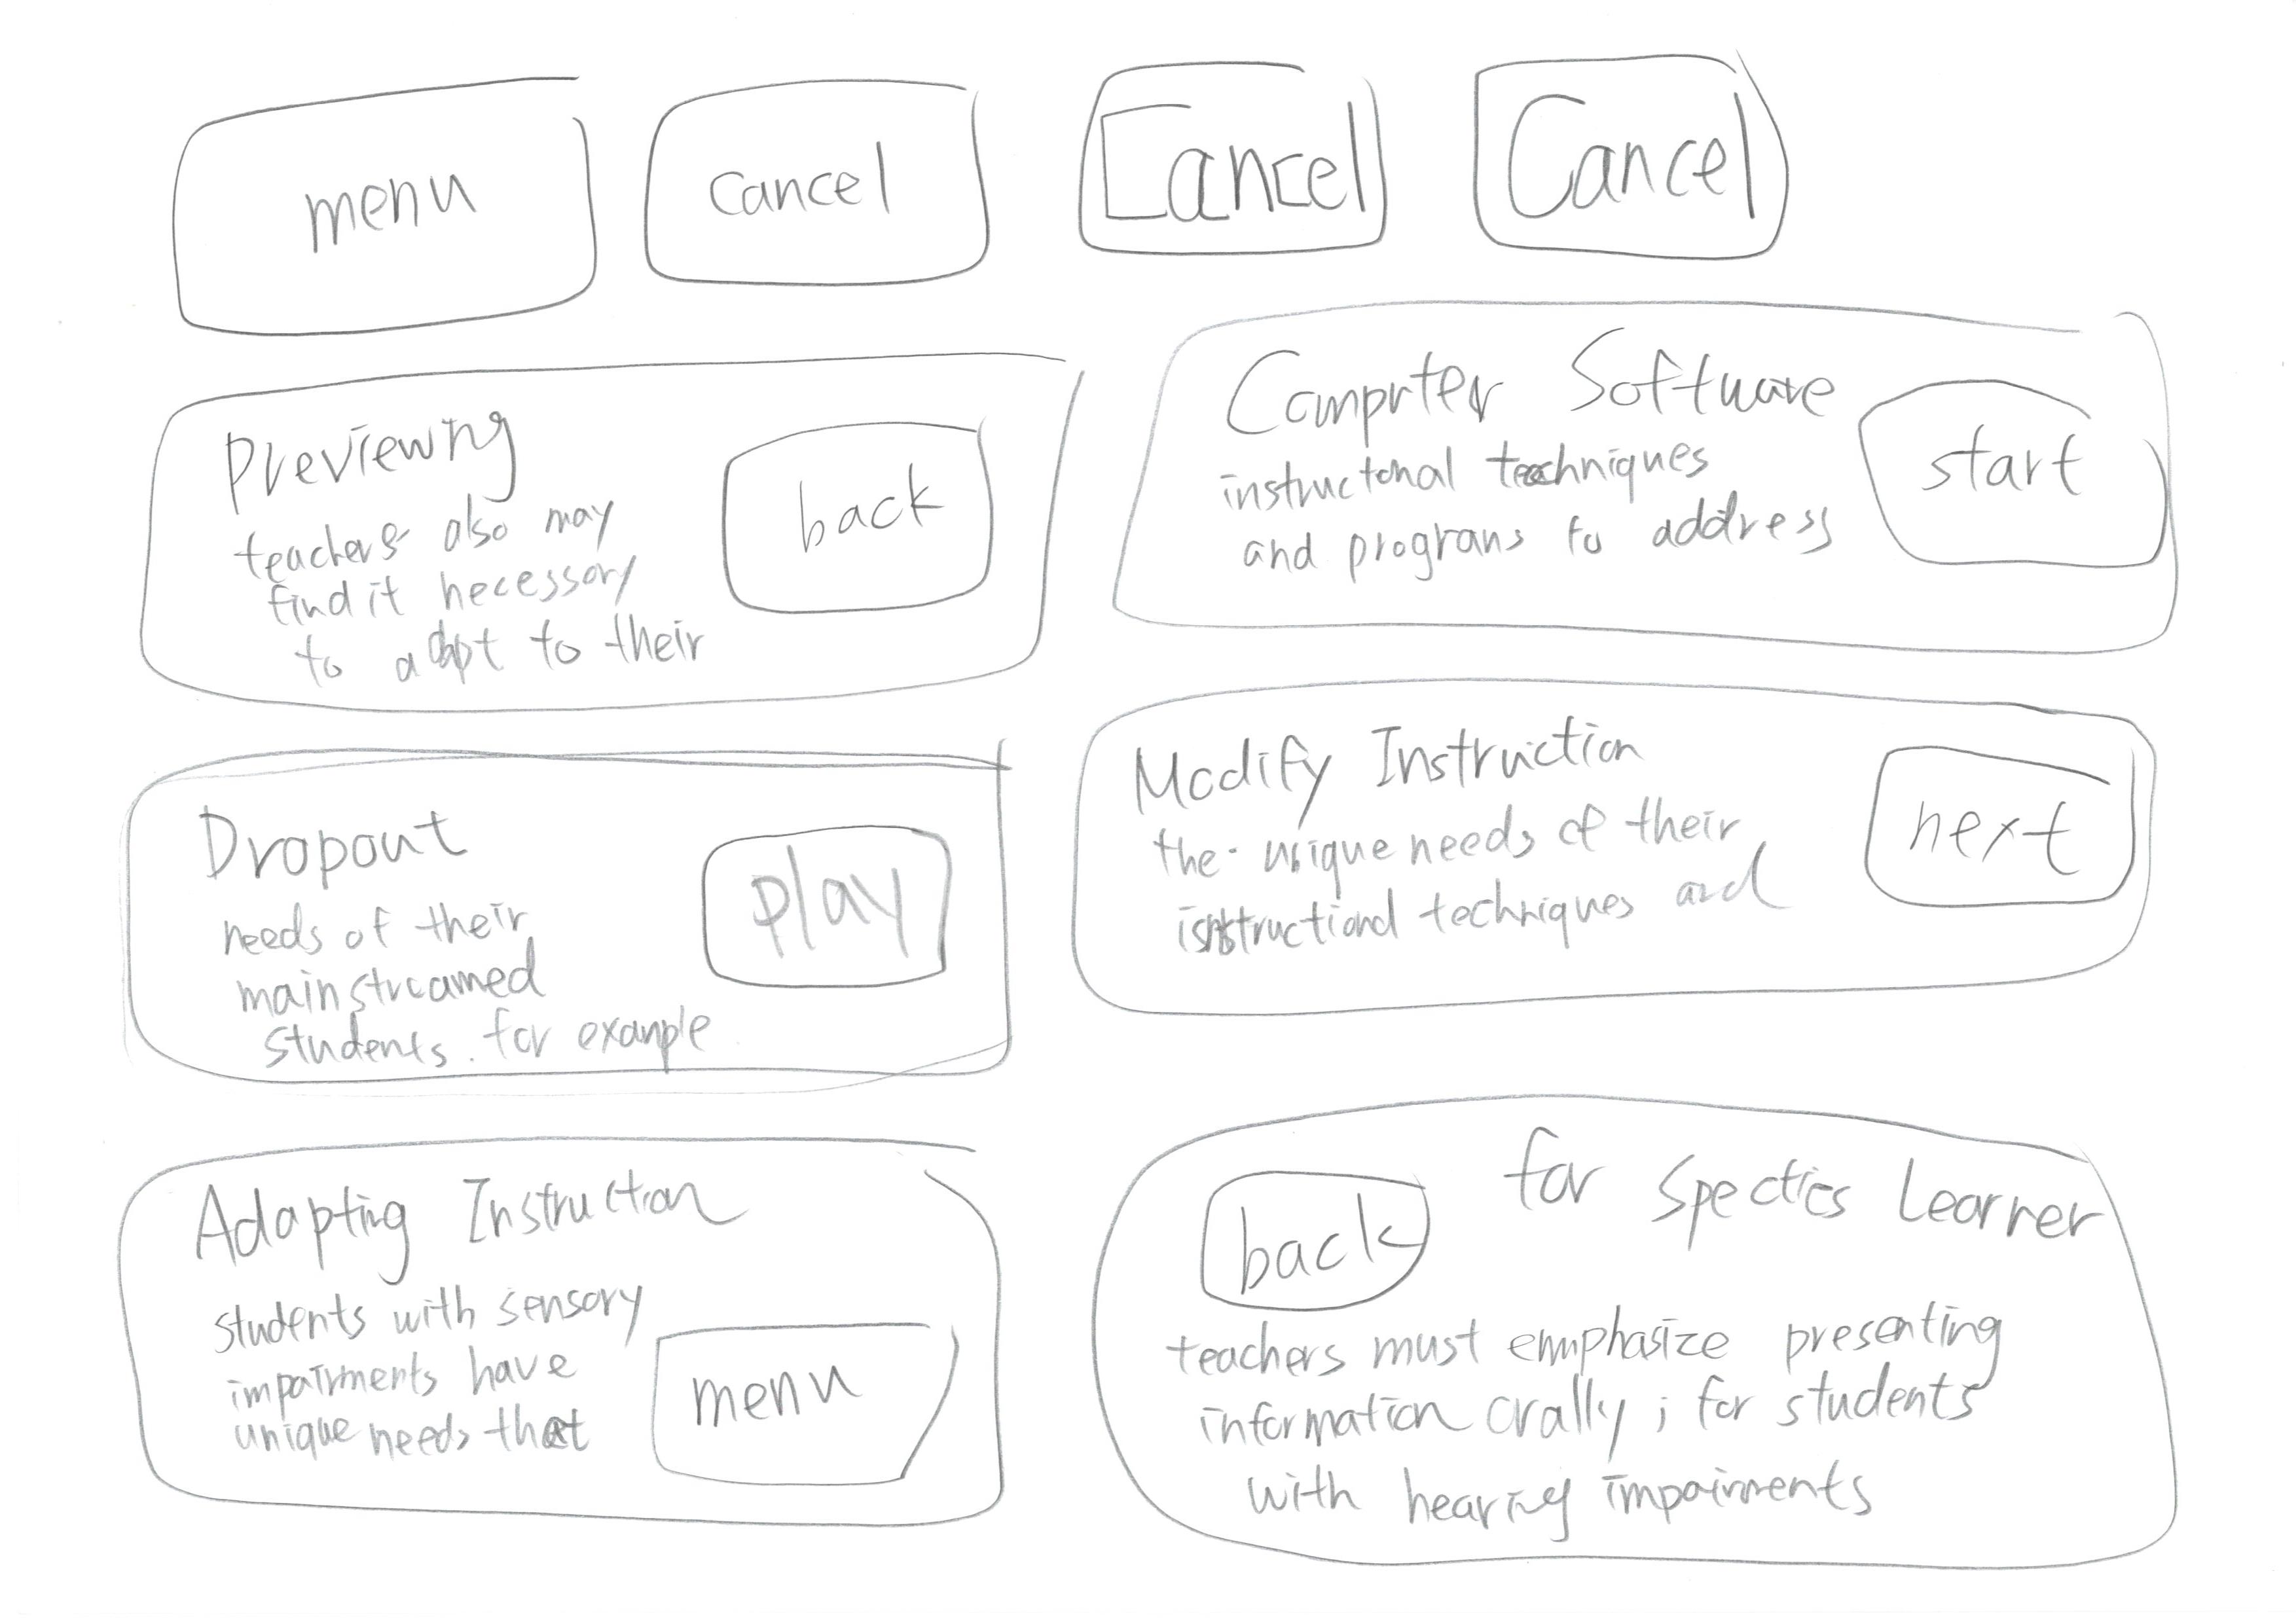 menu
cancel
Cancel
Cancel
Previewing
teachers also may
find it necessary
to adapt to their
back
Computer Software
instructional techniques
and programs to address
start
Dropout
needs of their
mainstreamed
students. for example
play
Modify Instruction
the unique needs of their
instructional techniques and
next
Adapting Instruction
students with sensory
impairments have
unique needs that
menu
back
for Spectics Learner
teachers must emphasize presenting
information orally; for students
with hearing impairments